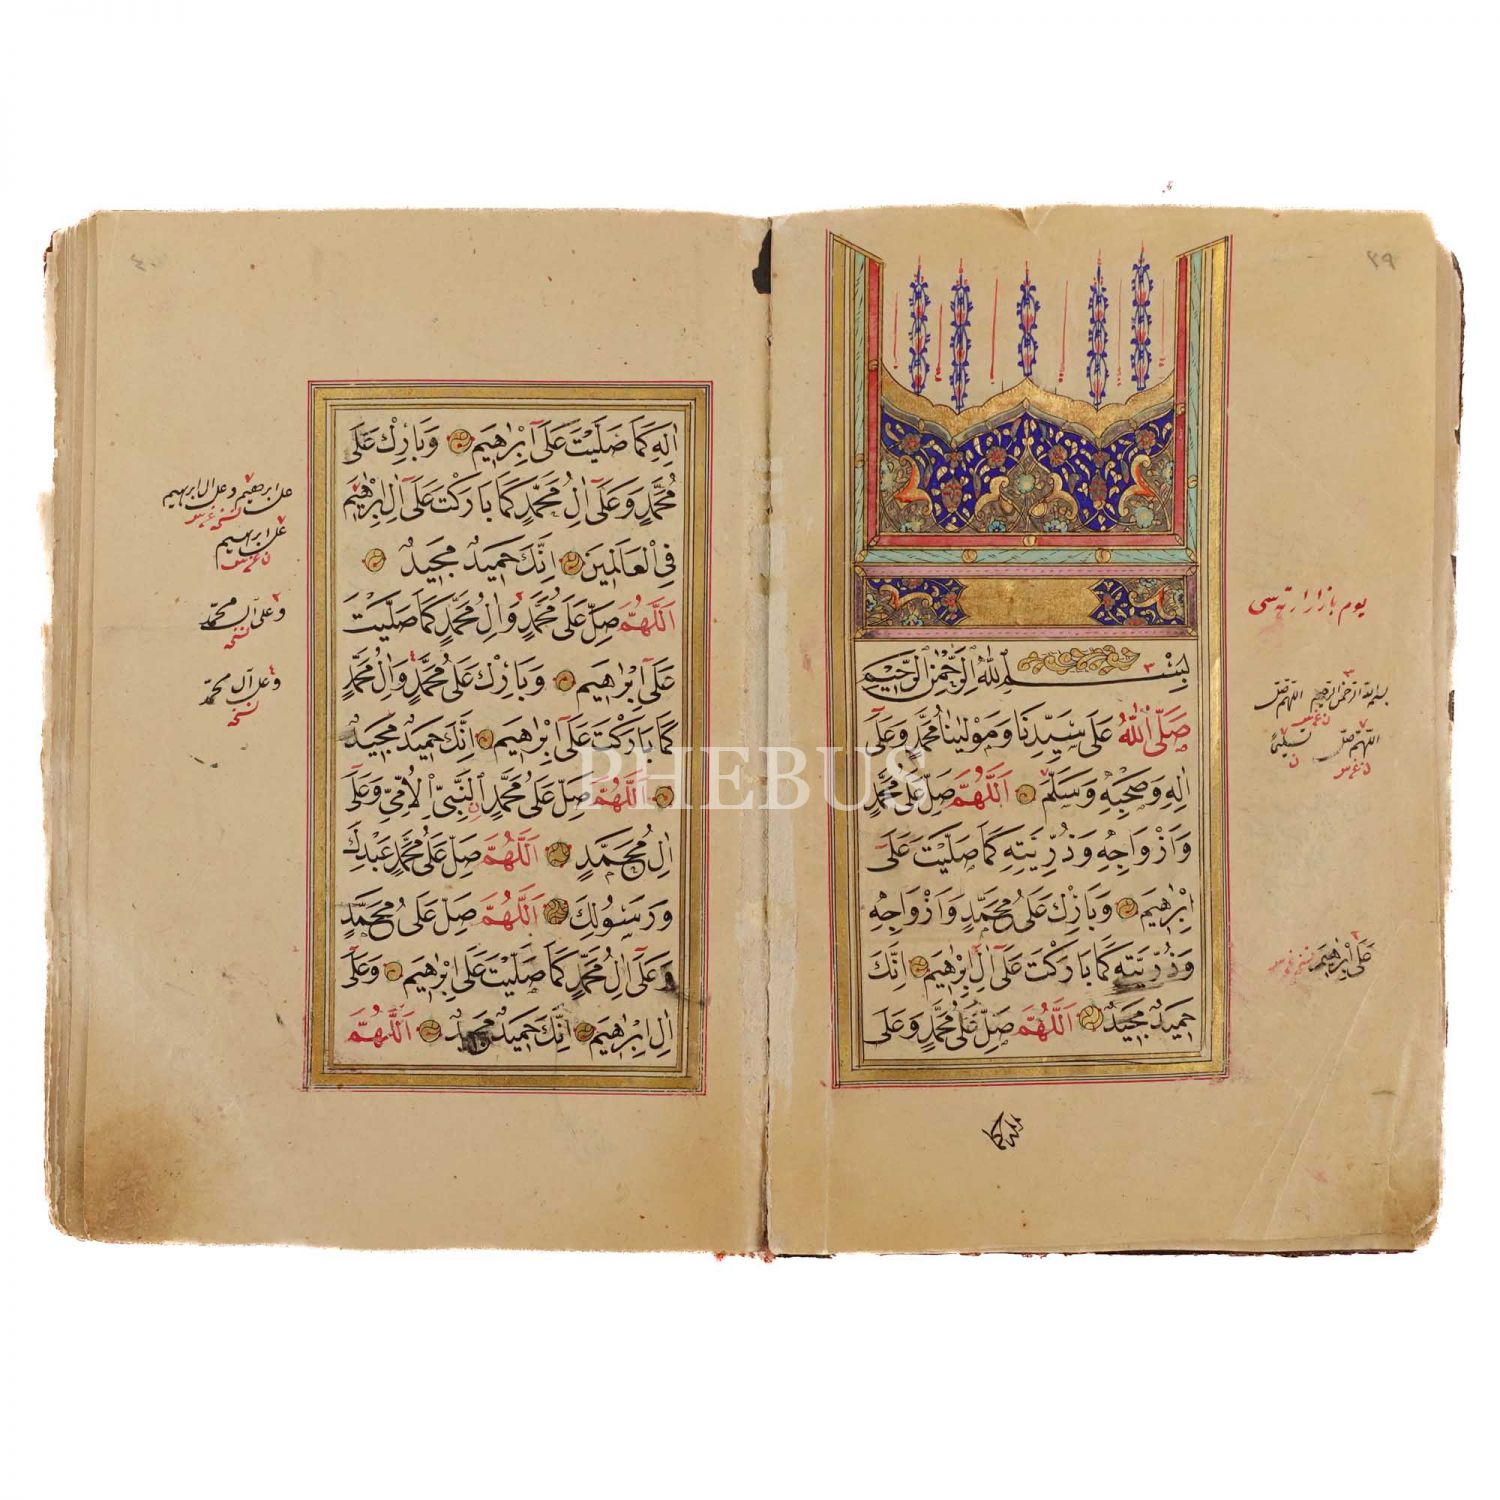 ٣٩
بِسْمِ اللّٰهِ الرَّحْمٰنِ الرَّحِيْمِ ٣
صَلَّى اللّٰهُ عَلٰى سَيِّدِنَا وَمَوْلٰينَا مُحَمَّدٍ وَعَلٰى
اٰلِهِ وَصَحْبِهِ وَسَلَّمَ اَللّٰهُمَّ صَلِّ عَلٰى مُحَمَّدٍ
وَاَزْوَاجِهِ وَذُرِّيَتِهِ كَمَا صَلَّيْتَ عَلٰى
اِبْرٰهِيْمَ وَبَارِكْ عَلٰى مُحَمَّدٍ وَاَزْوَاجِهِ
وَذُرِّيَتِهِ كَمَا بَارَكْتَ عَلٰى اٰلِ اِبْرٰهِيْمَ اِنَّكَ
حَمِيْدٌ مَجِيْدٌ اَللّٰهُمَّ صَلِّ عَلٰى مُحَمَّدٍ وَعَلٰى
يوم بازار ارته سى
بسم الله الرحمن الرحيم اللهم صل
اللهم صل تسليما
على ابرهيم نسخه
اله كما
٤٠
اٰلِهِ كَمَا صَلَّيْتَ عَلٰى اِبْرٰهِيْمَ وَبَارِكْ عَلٰى
مُحَمَّدٍ وَعَلٰى اٰلِ مُحَمَّدٍ كَمَا بَارَكْتَ عَلٰى اٰلِ اِبْرٰهِيْمَ
فِى الْعَالَمِيْنَ اِنَّكَ حَمِيْدٌ مَجِيْدٌ
اَللّٰهُمَّ صَلِّ عَلٰى مُحَمَّدٍ وَاٰلِ مُحَمَّدٍ كَمَا صَلَّيْتَ
عَلٰى اِبْرٰهِيْمَ وَبَارِكْ عَلٰى مُحَمَّدٍ وَاٰلِ مُحَمَّدٍ
كَمَا بَارَكْتَ عَلٰى اِبْرٰهِيْمَ اِنَّكَ حَمِيْدٌ مَجِيْدٌ
اَللّٰهُمَّ صَلِّ عَلٰى مُحَمَّدٍ النَّبِىِّ الْاُمِّىِّ وَعَلٰى
اٰلِ مُحَمَّدٍ اَللّٰهُمَّ صَلِّ عَلٰى مُحَمَّدٍ عَبْدِكَ
وَرَسُوْلِكَ اَللّٰهُمَّ صَلِّ عَلٰى مُحَمَّدٍ
وَعَلٰى اٰلِ مُحَمَّدٍ كَمَا صَلَّيْتَ عَلٰى اِبْرٰهِيْمَ وَعَلٰى
اٰلِ اِبْرٰهِيْمَ اِنَّكَ حَمِيْدٌ مَجِيْدٌ اَللّٰهُمَّ
على ابرهيم وعلى ال ابرهيم
نسخه
على ابرهيم
وعلى آل محمد
نسخه
وعلى آل محمد
نسخه
PHEBUS